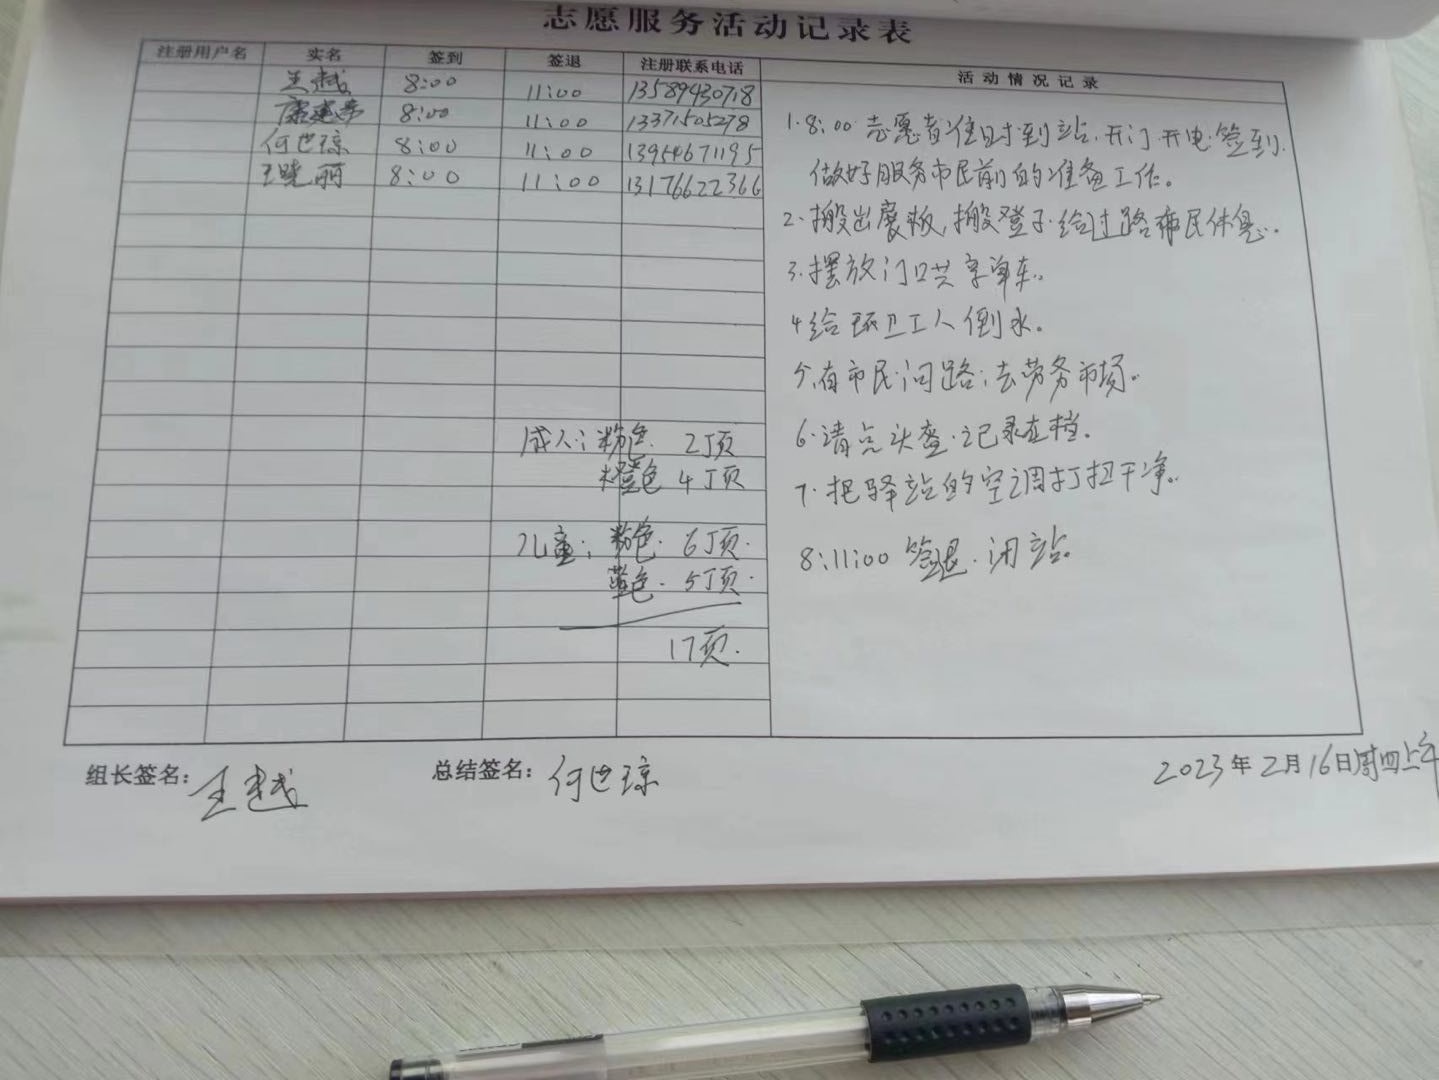 志愿服务活动记录表
注册用户名 实名 签到 签退 注册联系电话 活动情况记录
王越 8:00 11:00 13589430718
康建 8:00 11:00 13371505278
何世琼 8:00 11:00 13954671195
王晓丽 8:00 11:00 13176622366
成人:粉色. 2顶
橙色 4顶
儿童:粉色. 6顶.
蓝色. 5顶.
17顶.
1.8:00 志愿者准时到站.开门.开电.签到.
做好服务市民前的准备工作。
2.搬出展板,搬凳子.给过路市民休息.
3.摆放门口共享单车.
4.给环卫工人倒水。
5.有市民问路:去劳务市场.
6.清点头盔.记录在档.
7.把驿站的空调打扫干净.
8:11:00 签退.闭站.
组长签名: 王越 总结签名: 何世琼 2023年2月16日周四上午